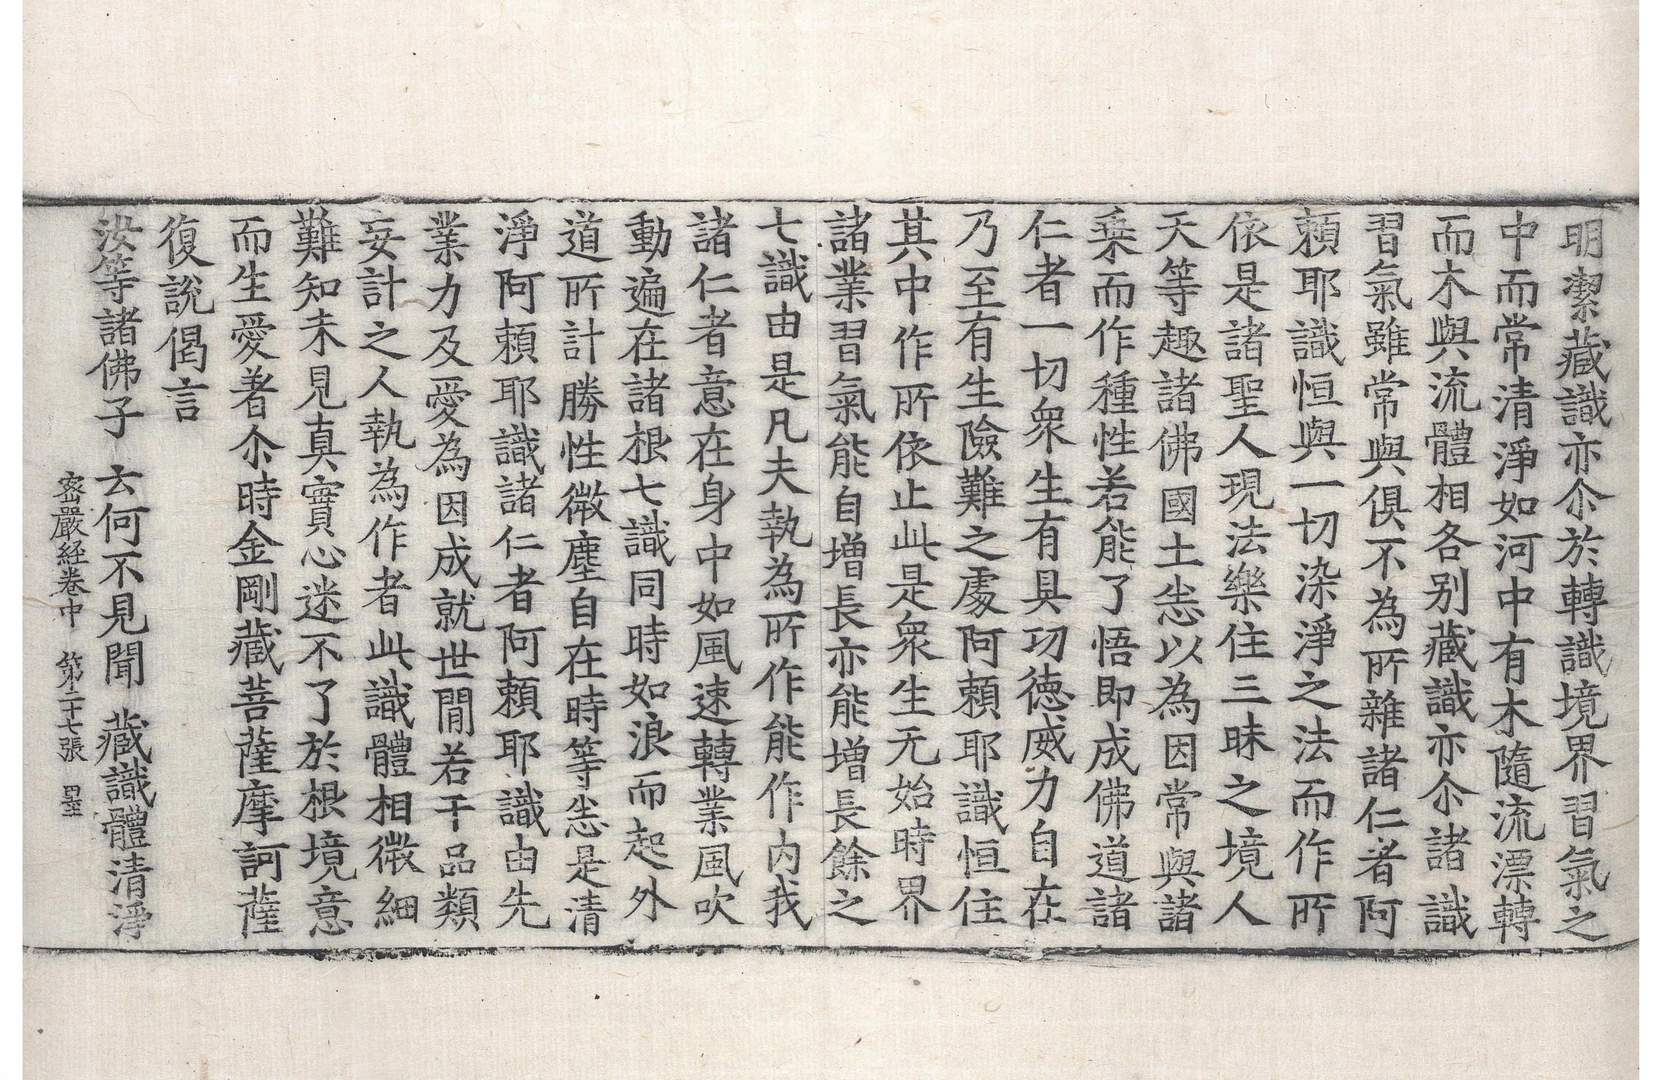 明潔藏識亦尒於轉識境界習氣之
中而常清淨如河中有木隨流漂轉
而木與流體相各别藏識亦尒諸識
習氣雖常與俱不為所雜諸仁者阿
頼耶識恒與一切染淨之法而作所
依是諸聖人現法樂住三昧之境人
天等趣諸佛國土悉以為因常與諸
乗而作種性若能了悟即成佛道諸
仁者一切衆生有具功徳威力自在
乃至有生險難之處阿頼耶識恒住
其中作所依止此是衆生无始時界
諸業習氣能自增長亦能增長餘之
七識由是凡夫執為所作能作内我
諸仁者意在身中如風速轉業風吹
動遍在諸根七識同時如浪而起外
道所計勝性微塵自在時等悉是清
淨阿頼耶識諸仁者阿頼耶識由先
業力及愛為因成就世間若干品類
妄計之人執為作者此識體相微細
難知未見真實心迷不了於根境意
而生愛著尒時金剛藏菩薩摩訶薩
復說偈言
汝等諸佛子 云何不見聞 藏識體清淨
密嚴経卷中 第二十七張